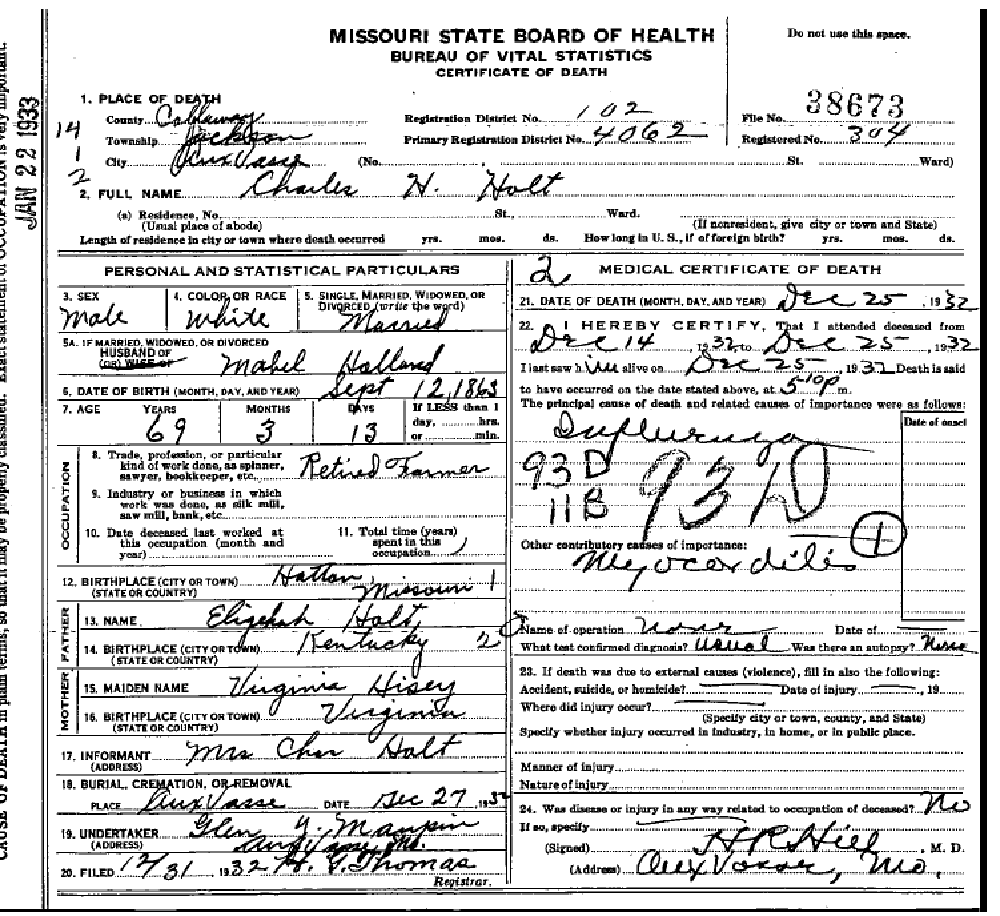 MISSOURI STATE BOARD OF HEALTH
BUREAU OF VITAL STATISTICS
CERTIFICATE OF DEATH
Do not use this space.
JAN 22 1933
1. PLACE OF DEATH
County Callaway Registration District No. 102 File No. 38673
14 Township Jackson Primary Registration District No. 4062 Registered No. 304
1 City AuxVasse (No. St. Ward)
2
2. FULL NAME Charles H. Holt
(a) Residence, No. St., Ward.
(Usual place of abode) (If nonresident, give city or town and State)
Length of residence in city or town where death occurred yrs. mos. ds. How long in U. S., if of foreign birth? yrs. mos. ds.
PERSONAL AND STATISTICAL PARTICULARS
3. SEX 4. COLOR OR RACE 5. SINGLE, MARRIED, WIDOWED, OR
DIVORCED (write the word)
Male White Married
5A. IF MARRIED, WIDOWED, OR DIVORCED
HUSBAND OF
(OR) WIFE OF Mabel Holland
6. DATE OF BIRTH (MONTH, DAY, AND YEAR) Sept 12, 1863
7. AGE YEARS MONTHS DAYS If LESS than 1
day, hrs.
or min.
69 3 13
OCCUPATION
8. Trade, profession, or particular
kind of work done, as spinner,
sawyer, bookkeeper, etc. Retired Farmer
9. Industry or business in which
work was done, as silk mill,
saw mill, bank, etc.
10. Date deceased last worked at
this occupation (month and
year)
11. Total time (years)
spent in this
occupation
12. BIRTHPLACE (CITY OR TOWN) Hatton,
(STATE OR COUNTRY) Missouri 1
FATHER
13. NAME Eligekah Holt
14. BIRTHPLACE (CITY OR TOWN) Kentucky 2
(STATE OR COUNTRY)
MOTHER
15. MAIDEN NAME Virginia Hisey
16. BIRTHPLACE (CITY OR TOWN) Virginia
(STATE OR COUNTRY)
17. INFORMANT Mrs Chas Holt
(ADDRESS)
18. BURIAL, CREMATION, OR REMOVAL
PLACE AuxVasse DATE Dec 27, 1932
19. UNDERTAKER Glen Y. Maupin
(ADDRESS) AuxVasse, Mo.
20. FILED 12/31 1932 H. G. Thomas
Registrar.
2 MEDICAL CERTIFICATE OF DEATH
21. DATE OF DEATH (MONTH, DAY, AND YEAR) Dec 25, 1932
22. I HEREBY CERTIFY, That I attended deceased from
Dec 14, 1932 to Dec 25, 1932
I last saw him alive on Dec 25, 1932 Death is said
to have occurred on the date stated above, at 510p m.
The principal cause of death and related causes of importance were as follows:
Date of onset
Influenza
93D
11B
93D
Other contributory causes of importance: 1
Myocarditis
Name of operation None Date of
What test confirmed diagnosis? Usual Was there an autopsy? None
23. If death was due to external causes (violence), fill in also the following:
Accident, suicide, or homicide? Date of injury , 19
Where did injury occur?
(Specify city or town, county, and State)
Specify whether injury occurred in industry, in home, or in public place.
Manner of injury
Nature of injury
24. Was disease or injury in any way related to occupation of deceased? No
If so, specify
(Signed) H R Hill, M. D.
(Address) Aux Vasse, Mo.